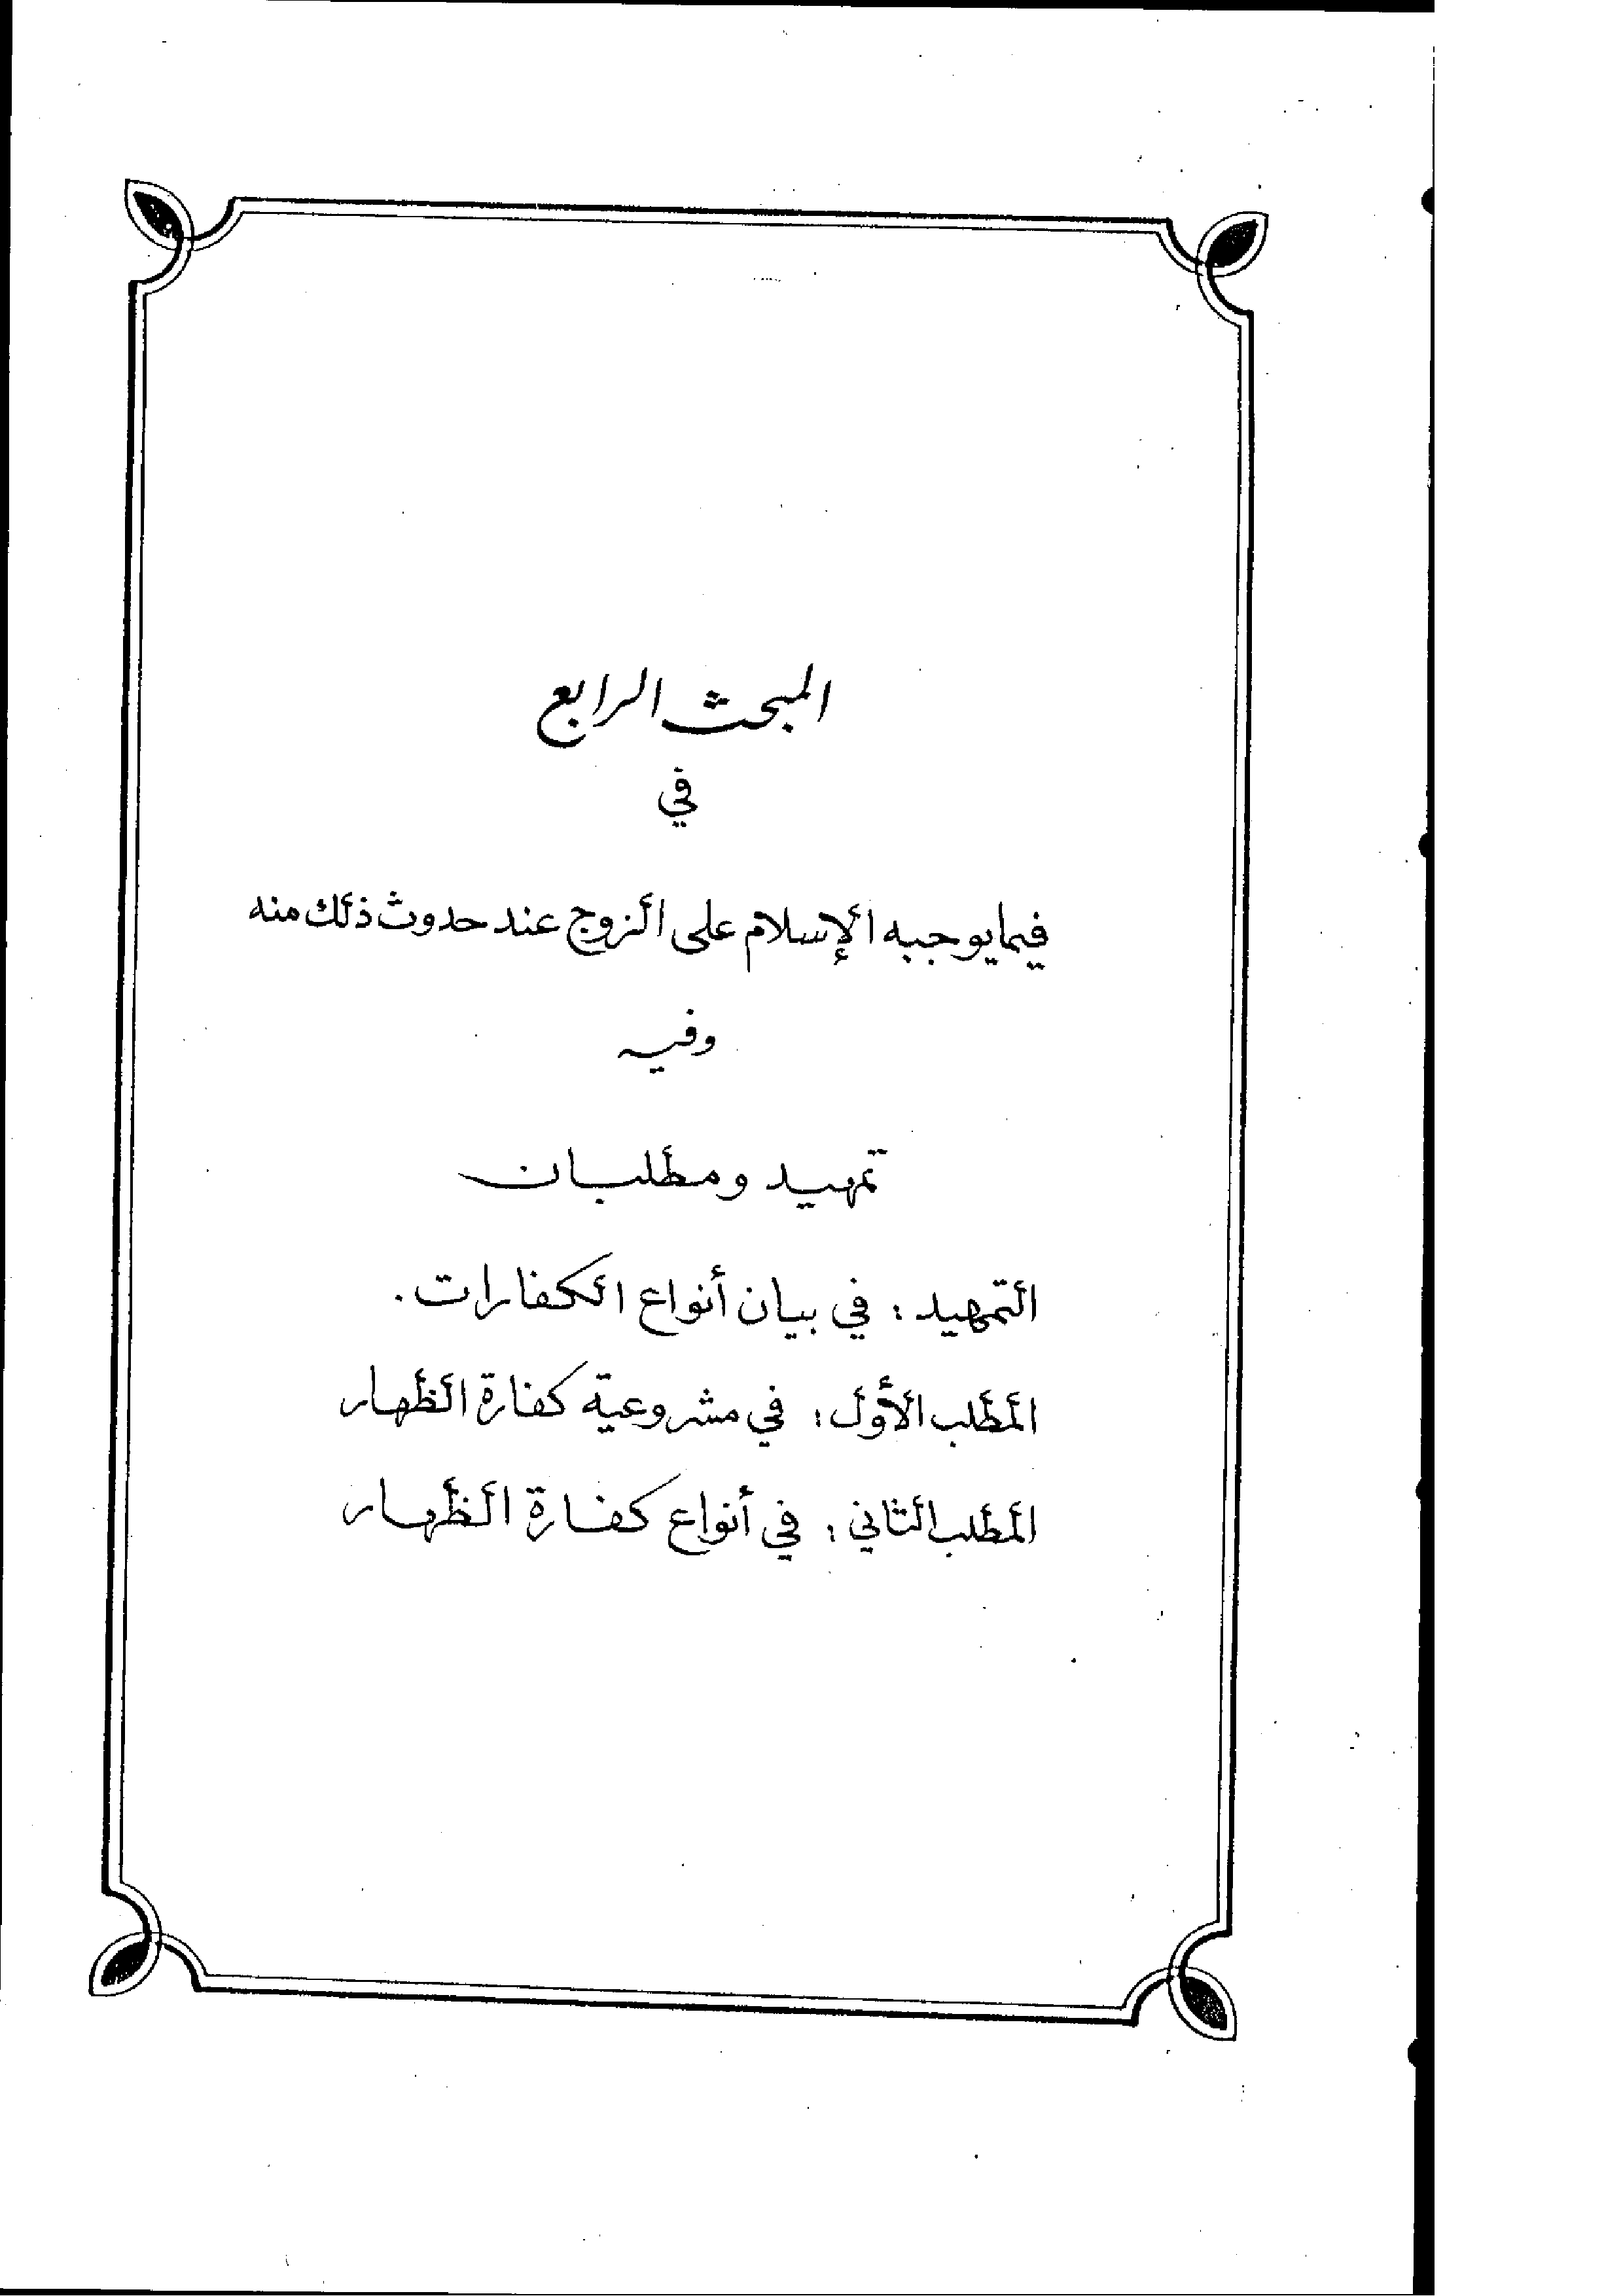 المبحث الرابع
في
فيما يوجبه الإسلام على الزوج عند حدوث ذلك منه
وفيه
تمهيد ومطلبان
التمهيد : في بيان أنواع الكفارات .
المطلب الأول : في مشروعية كفارة الظهار
المطلب الثاني : في أنواع كفارة الظهار